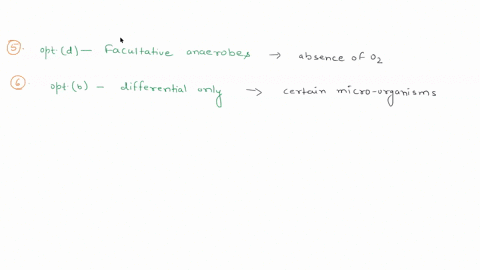 5. opt (d) — Facultative anaerobes → absence of O₂
6. opt (b) – differential only → certain micro-organisms